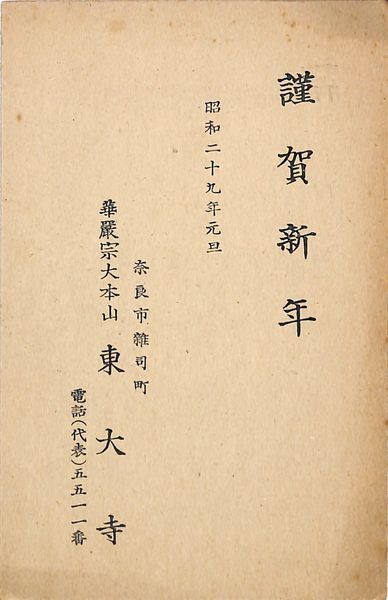 謹賀新年
昭和二十九年元旦
奈良市雜司町
華嚴宗大本山 東大寺
電話(代表)五五一一番